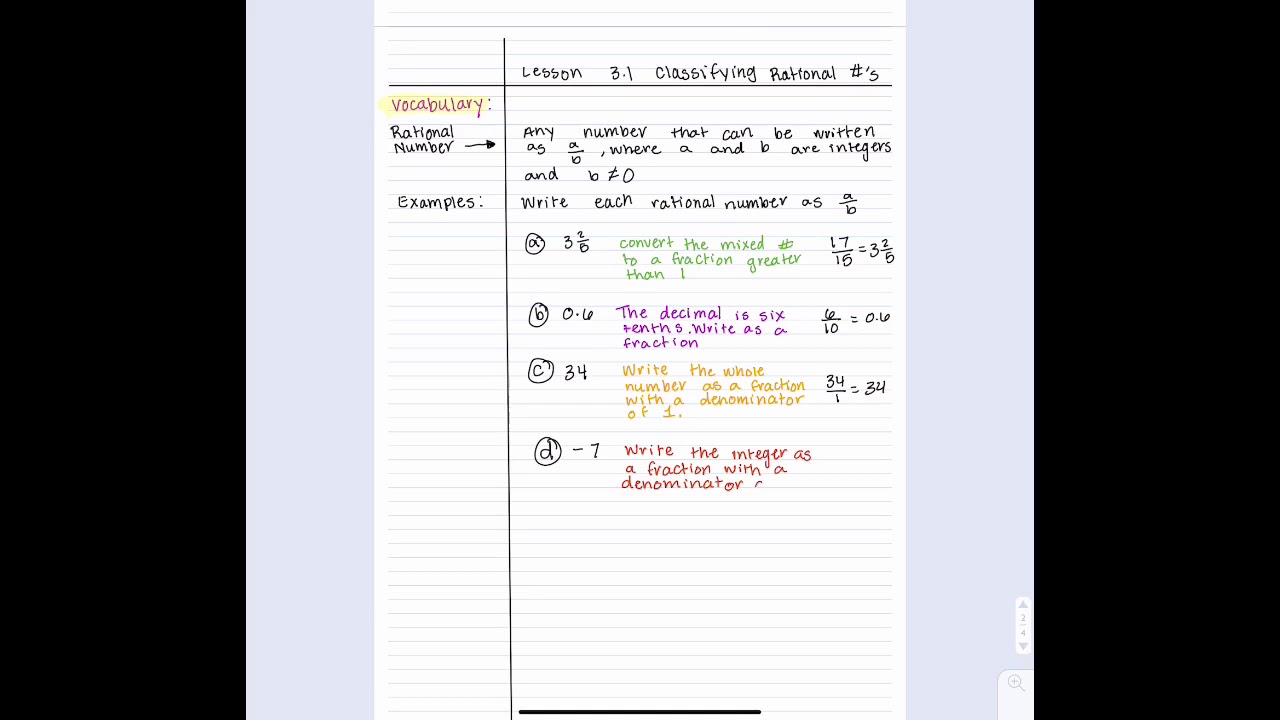 Lesson 3.1 Classifying Rational #'s
Vocabulary:
Rational
Number →
Any number that can be written
as a/b, where a and b are integers
and b ≠ 0
Examples:
Write each rational number as a/b
(a) 3 2/5
convert the mixed #
to a fraction greater
than 1
17/15 = 3 2/5
(b) 0.6
The decimal is six
tenths. Write as a
fraction
6/10 = 0.6
(c) 34
Write the whole
number as a fraction
with a denominator
of 1.
34/1 = 34
(d) -7
Write the integer as
a fraction with a
denominator
2
4